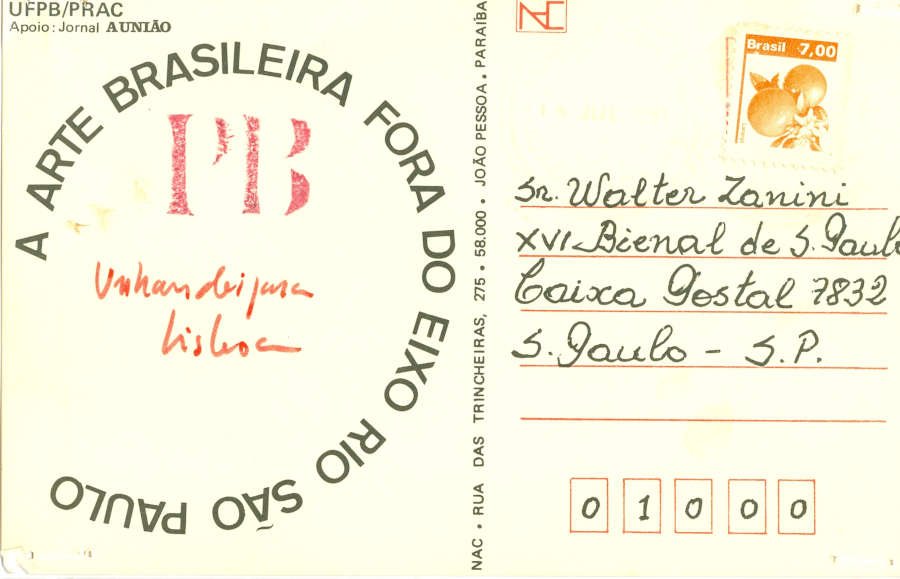 UFPB/PRAC
Apoio: Jornal A UNIÃO
A ARTE BRASILEIRA FORA DO EIXO RIO SÃO PAULO
PB
Unhandeijara
Lisboa
NAC • RUA DAS TRINCHEIRAS, 275 • 58.000 • JOÃO PESSOA • PARAÍBA
NAC
Brasil 7,00
Sr. Walter Zanini
XVI Bienal de S. Paulo
Caixa Postal 7832
S. Paulo - S.P.
0 1 0 0 0